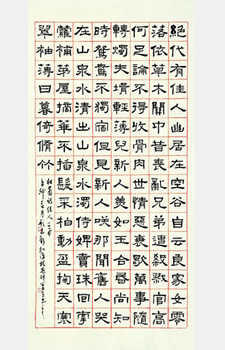 絕代有佳人幽居在空谷自云良家女零
落依草木關中昔喪亂兄弟遭殺戮官高
何足論不得收骨肉世情惡衰歇萬事隨
轉燭夫壻輕薄兒新人美如玉合昏尚知
時鴛鴦不獨宿但見新人笑那聞舊人哭
在山泉水清出山泉水濁侍婢賣珠回牽
蘿補茅屋摘華不插髮采柏動盈掬天寒
翠袖薄日暮倚脩竹
杜甫詩佳人一首